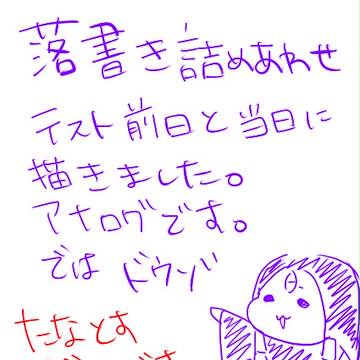 落書き詰めあわせ
テスト前日と当日に
描きました。
アナログです。
では ドウゾ
たなとす